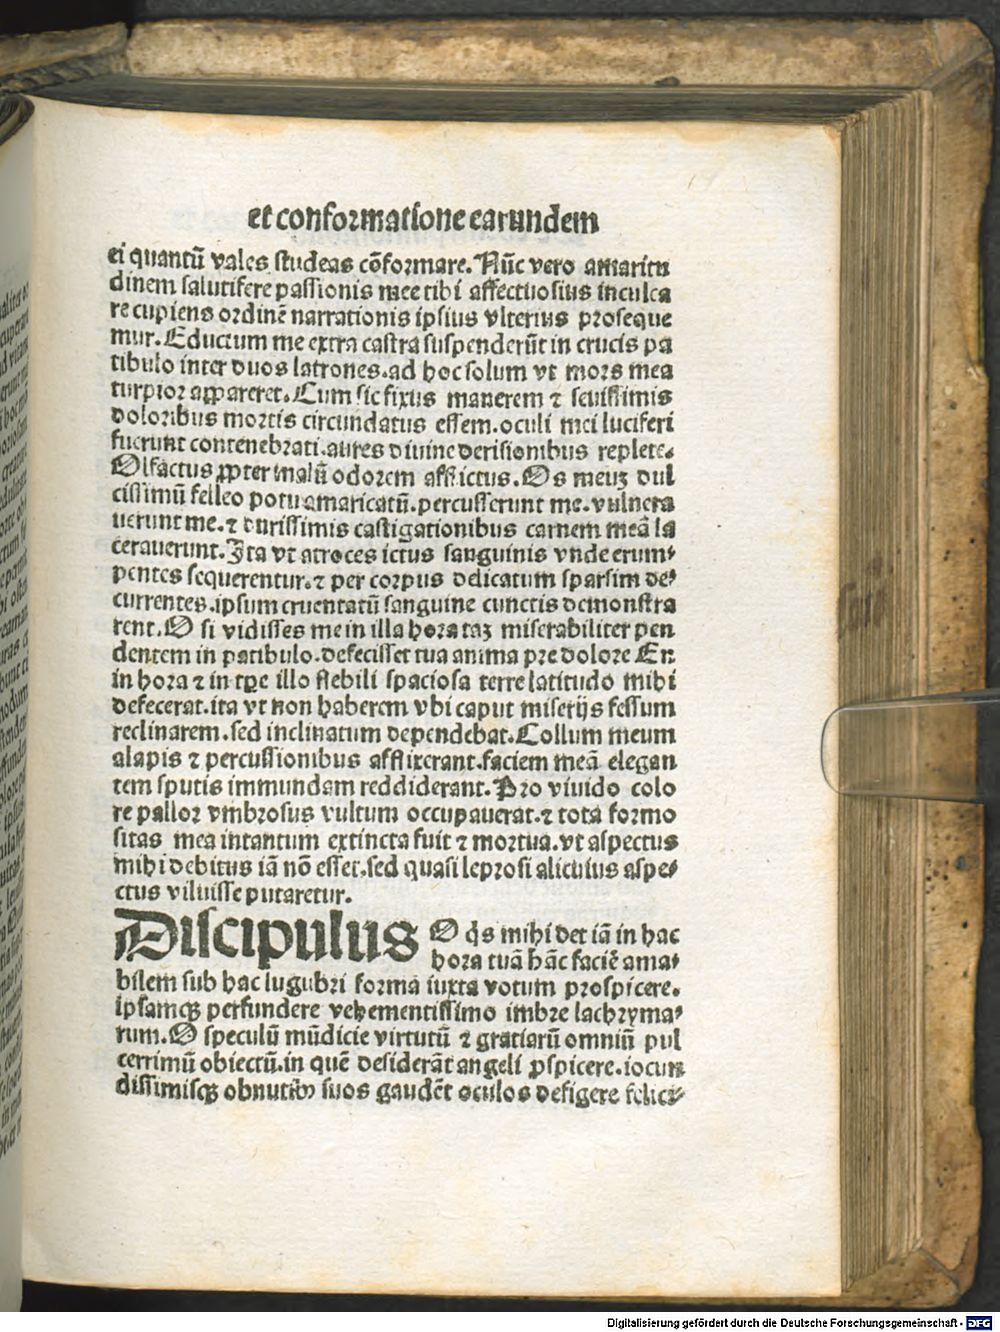 et conformatione earundem
ei quantū vales studeas cōformare. Nūc vero amaritu
dinem salutifere passionis mee tibi affectuosius inculca
re cupiens ordinē narrationis ipsius vlterius proseque
mur. Eductum me extra castra suspenderūt in crucis pa
tibulo inter duos latrones. ad hoc solum vt mors mea
turpior appareret. Cum sic fixus manerem ⁊ seuissimis
doloribus mortis circundatus essem. oculi mei luciferi
fuerunt contenebrati. aures diuine derisionibus replete.
Olfactus ꝓpter malū odorem afflictus. Os meuꝫ dul
cissimū felleo potu amaricatū. percusserunt me. vulnera
uerunt me. ⁊ durissimis castigationibus carnem meā la
cerauerunt. Ita vt atroces ictus sanguinis vnde erum⸗
pentes sequerentur. ⁊ per corpus delicatum sparsim de⸗
currentes. ipsum cruentatū sanguine cunctis demonstra
rent. O si vidisses me in illa hora taꝫ miserabiliter pen
dentem in patibulo. defecisset tua anima pre dolore En
in hora ⁊ in tꝑe illo flebili spaciosa terre latitudo mihi
defecerat. ita vt non haberem vbi caput miserijs fessum
reclinarem. sed inclinatum dependebat. Collum meum
alapis ⁊ percussionibus afflixerant. faciem meā elegan
tem sputis immundam reddiderant. Pro viuido colo
re pallor vmbrosus vultum occupauerat. ⁊ tota formo
sitas mea intantum extincta fuit ⁊ mortua. vt aspectus
mihi debitus iā nō esset. sed quasi leprosi alicuius aspe⸗
ctus viluisse putaretur.
Discipulus O q̇s mihi det iā in hac
hora tuā hāc faciē ama⸗
bilem sub hac lugubri forma iuxta votum prospicere.
ipsamqꝫ perfundere vehementissimo imbre lachryma⸗
rum. O speculū mūdicie virtutū ⁊ gratiarū omniū pul
cerrimū obiectū. in quē desiderāt angeli ꝓspicere. iocun
dissimisqꝫ obnutibꝰ suos gaudēt oculos defigere felici⸗
Digitalisierung gefördert durch die Deutsche Forschungsgemeinschaft - DFG